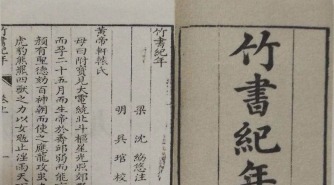 竹書紀年
竹書紀年
梁 沈約 注
明 吳琯 校
黃帝軒轅氏
母曰附寶見大電繞北斗樞星光照郊
而孕二十五月而生帝於壽邱弱而能
顏有聖德劾百神朝而使之應龍攻蚩
虎豹熊羆四獸之力以女魃止淫雨天
竹書紀年 卷上